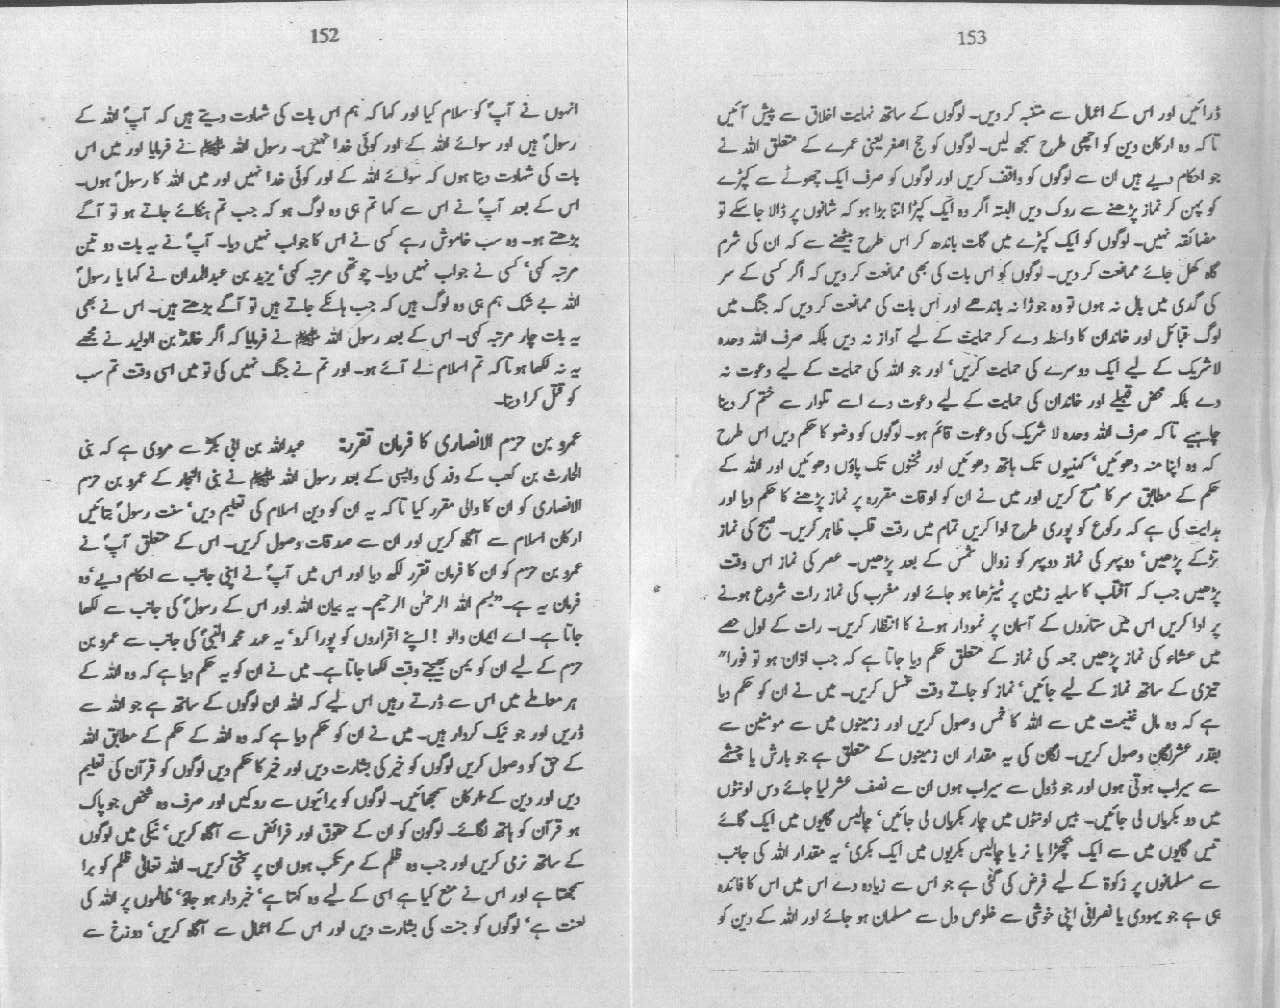 152
انہوں نے آپؐ کو سلام کیا اور کہا کہ ہم اس بات کی شہادت دیتے ہیں کہ آپؐ اللہ کے
رسولؐ ہیں اور سوائے اللہ کے اور کوئی خدا نہیں۔ رسول اللہ ﷺ نے فرمایا اور میں اس
بات کی شہادت دیتا ہوں کہ سوائے اللہ کے اور کوئی خدا نہیں اور میں اللہ کا رسولؐ ہوں۔
اس کے بعد آپؐ نے اس سے کہا تم ہی وہ لوگ ہو کہ جب تم ہنکائے جاتے ہو تو آگے
بڑھتے ہو۔ وہ سب خاموش رہے کسی نے اس کا جواب نہیں دیا۔ آپؐ نے یہ بات دو تین
مرتبہ کہی‘ کسی نے جواب نہیں دیا۔ چوتھی مرتبہ کہی‘ یزید بن عبدالمدان نے کہا یا رسولؐ
اللہ بے شک ہم ہی وہ لوگ ہیں کہ جب ہانکے جاتے ہیں تو آگے بڑھتے ہیں۔ اس نے بھی
یہ بات چار مرتبہ کہی۔ اس کے بعد رسول اللہ ﷺ نے فرمایا کہ اگر خالدؓ بن الولید نے مجھے
یہ نہ لکھا ہوتا کہ تم اسلام لے آئے ہو۔ اور تم نے جنگ نہیں کی تو میں اسی وقت تم سب
کو قتل کرا دیتا۔
عمرو بن حزم الانصاری کا فرمان تقرر: عبداللہ بن ابی بکرؓ سے مروی ہے کہ بنی
الحارث بن کعب کے وفد کی واپسی کے بعد رسول اللہ ﷺ نے بنی النجار کے عمرو بن حزم
الانصاری کو ان کا والی مقرر کیا تا کہ یہ ان کو دین اسلام کی تعلیم دیں‘ سنت رسولؐ بتائیں
ارکان اسلام سے آگاہ کریں اور ان سے صدقات وصول کریں۔ اس کے متعلق آپؐ نے
عمرو بن حزم کو ان کا فرمان تقرر لکھ دیا اور اس میں آپؐ نے اپنی جانب سے احکام دیے‘ وہ
فرمان یہ ہے۔ ”بسم اللہ الرحمٰن الرحیم۔ یہ بیان اللہ اور اس کے رسولؐ کی جانب سے لکھا
جاتا ہے۔ اے ایمان والو! اپنے اقراروں کو پورا کرو‘ یہ عہد محمد النبیؐ کی جانب سے عمرو بن
حزم کے لیے ان کو یمن بھیجتے وقت لکھا جاتا ہے۔ میں نے ان کو یہ حکم دیا ہے کہ وہ اللہ کے
ہر معاملے میں اس سے ڈرتے رہیں اس لیے کہ اللہ ان لوگوں کے ساتھ ہے جو اللہ سے
ڈریں اور جو نیک کردار ہیں۔ میں نے ان کو حکم دیا ہے کہ وہ اللہ کے حکم کے مطابق اللہ
کے حق کو وصول کریں لوگوں کو خیر کی بشارت دیں اور خیر کا حکم دیں لوگوں کو قرآن کی تعلیم
دیں اور دین کے ارکان سمجھائیں۔ لوگوں کو برائیوں سے روکیں اور صرف وہ شخص جو پاک
ہو قرآن کو ہاتھ لگائے۔ لوگوں کو ان کے حقوق اور فرائض سے آگاہ کریں‘ نیکی میں لوگوں
کے ساتھ نرمی کریں اور جب وہ ظلم کے مرتکب ہوں ان پر سختی کریں۔ اللہ تعالیٰ ظلم کو برا
سمجھتا ہے اور اس نے منع کیا ہے اسی کے لیے وہ کہتا ہے‘ خبردار ہو جاؤ‘ ظالموں پر اللہ کی
لعنت ہے‘ لوگوں کو جنت کی بشارت دیں اور اس کے اعمال سے آگاہ کریں‘ دوزخ سے
153
ڈرائیں اور اس کے اعمال سے متنبہ کر دیں۔ لوگوں کے ساتھ نہایت اخلاق سے پیش آئیں
تا کہ وہ ارکان دین کو اچھی طرح سمجھ لیں۔ لوگوں کو حج اصغر یعنی عمرے کے متعلق اللہ نے
جو احکام دیے ہیں ان سے لوگوں کو واقف کریں اور لوگوں کو صرف ایک چھوٹے سے کپڑے
کو پہن کر نماز پڑھنے سے روک دیں البتہ اگر وہ ایک کپڑا اتنا بڑا ہو کہ شانوں پر ڈالا جا سکے تو
مضائقہ نہیں۔ لوگوں کو ایک کپڑے میں گات باندھ کر اس طرح بیٹھنے سے کہ ان کی شرم
گاہ کھل جائے ممانعت کر دیں۔ لوگوں کو اس بات کی بھی ممانعت کر دیں کہ اگر کسی کے سر
کی گدی میں بال نہ ہوں تو وہ جوڑا نہ باندھے اور اس بات کی ممانعت کر دیں کہ جنگ میں
لوگ قبائل اور خاندان کا واسطہ دے کر حمایت کے لیے آواز نہ دیں بلکہ صرف اللہ وحدہ
لاشریک کے لیے ایک دوسرے کی حمایت کریں‘ اور جو اللہ کی حمایت کے لیے دعوت نہ
دے بلکہ محض قبیلے اور خاندان کی حمایت کے لیے دعوت دے اسے تلوار سے ختم کر دینا
چاہیے تا کہ صرف اللہ وحدہ لا شریک کی دعوت قائم ہو۔ لوگوں کو وضو کا حکم دیں اس طرح
کہ وہ اپنا منہ دھوئیں‘ کہنیوں تک ہاتھ دھوئیں اور ٹخنوں تک پاؤں دھوئیں اور اللہ کے
حکم کے مطابق سر کا مسح کریں اور میں نے ان کو اوقات مقررہ پر نماز پڑھنے کا حکم دیا اور
ہدایت کی ہے کہ رکوع کو پوری طرح ادا کریں تمام میں رقت قلب ظاہر کریں۔ صبح کی نماز
تڑکے پڑھیں‘ دوپہر کی نماز دوپہر کو زوال شمس کے بعد پڑھیں۔ عصر کی نماز اس وقت
پڑھیں جب کہ آفتاب کا سایہ زمین پر ٹیڑھا ہو جائے اور مغرب کی نماز رات شروع ہونے
پر ادا کریں اس میں ستاروں کے آسمان پر نمودار ہونے کا انتظار کریں۔ رات کے اول حصے
میں عشاء کی نماز پڑھیں جمعہ کی نماز کے متعلق حکم دیا جاتا ہے کہ جب اذان ہو تو فوراً
تیزی کے ساتھ نماز کے لیے جائیں‘ نماز کو جاتے وقت غسل کریں۔ میں نے ان کو حکم دیا
ہے کہ وہ مال غنیمت میں سے اللہ کا خمس وصول کریں اور زمینوں میں سے مومنین سے
بقدر عشر لگان وصول کریں۔ لگان کی یہ مقدار ان زمینوں کے متعلق ہے جو بارش یا چشمے
سے سیراب ہوتی ہوں اور جو ڈول سے سیراب ہوں ان سے نصف عشر لیا جائے دس اونٹوں
میں دو بکریاں لی جائیں۔ بیس اونٹوں میں چار بکریاں لی جائیں‘ چالیس گایوں میں ایک گائے
تیس گایوں میں سے ایک بچھڑا یا نر یا چالیس بکریوں میں ایک بکری‘ یہ مقدار اللہ کی جانب
سے مسلمانوں پر زکوۃ کے لیے فرض کی گئی ہے جو اس سے زیادہ دے اس میں اس کا فائدہ
ہی ہے جو یہودی یا نصرانی اپنی خوشی سے خلوص دل سے مسلمان ہو جائے اور اللہ کے دین کو